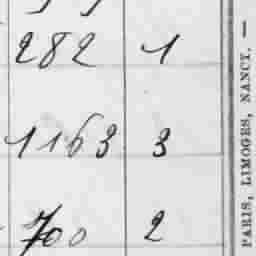 282 1
1163 3
700 2
PARIS, LIMOGES, NANCY. —